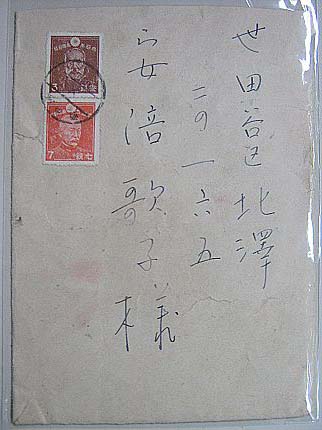 世田谷区北澤
二の一六五
安倍歌子様
3
7
七銭